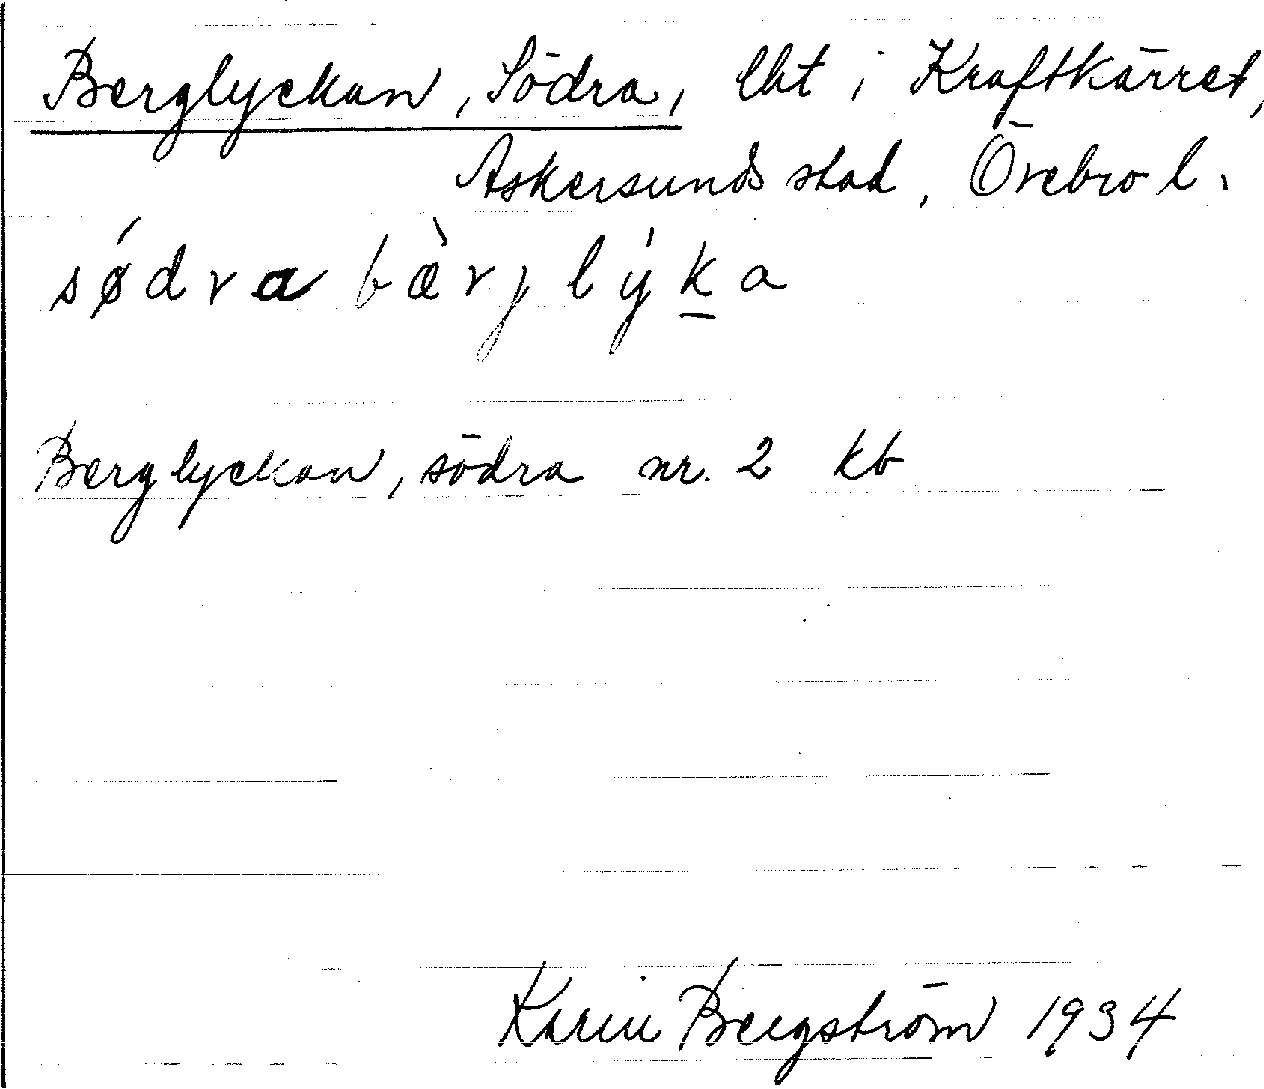 Berglyckan, Södra, lht i Kraftkärret,
Askersunds stad, Örebro l.
sǿdra bæ̀rjlýk̲a
Berglyckan, södra nr. 2 kb
Karin Bergström 1934